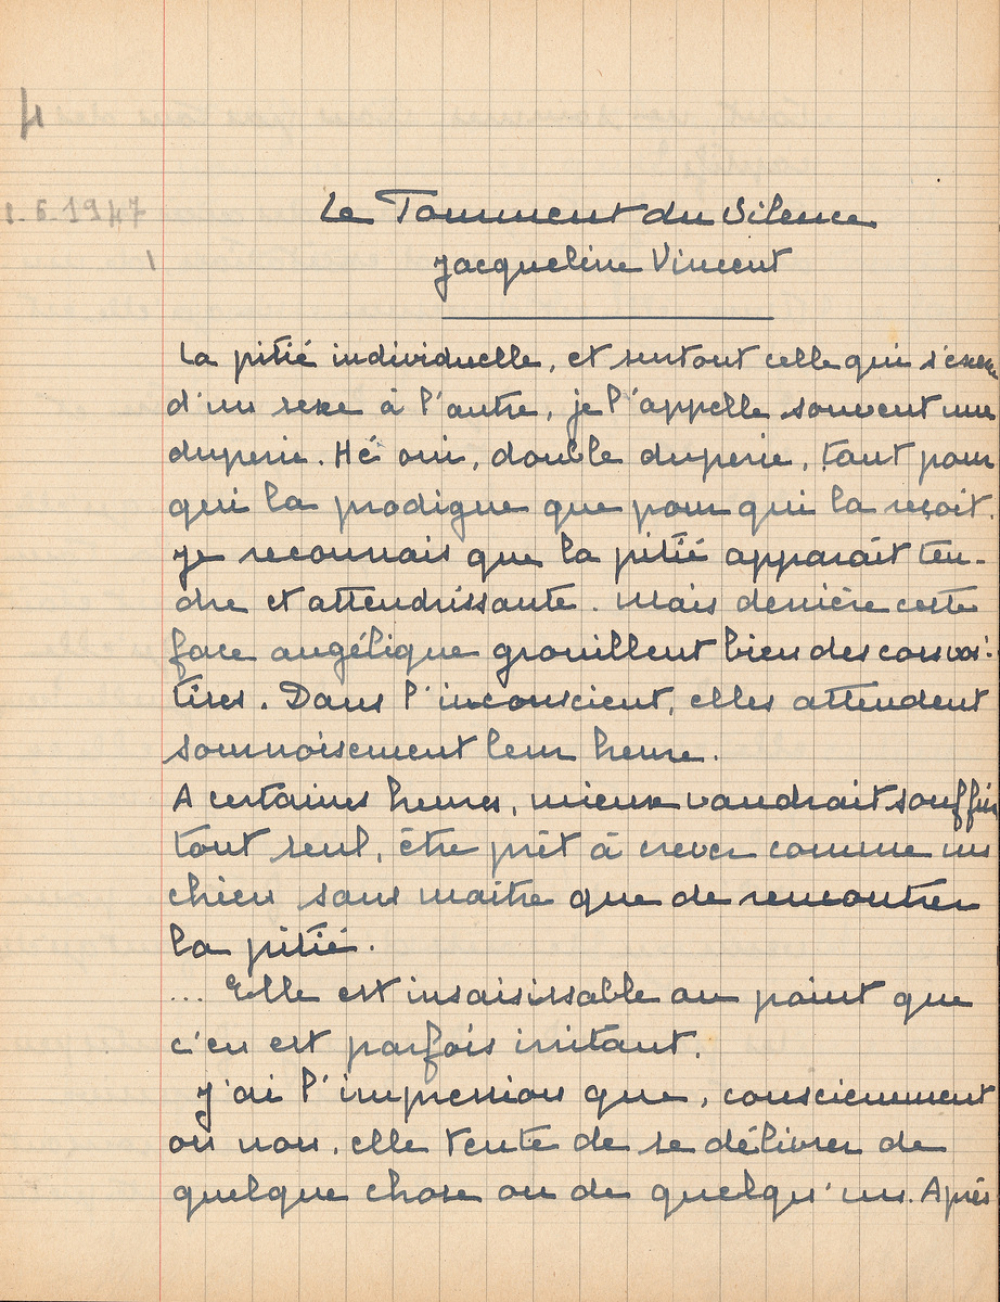 4
1.6.1947
Le Tourment du Silence
Jacqueline Vincent
La pitié individuelle, et surtout celle qui s'exerce
d'un sexe à l'autre, je l'appelle souvent une
duperie. Hé oui, double duperie, tant pour
qui la prodigue que pour qui la reçoit.
Je reconnais que la pitié apparaît ten-
dre et attendrissante. Mais derrière cette
face angélique grouillent bien des convoi-
tises. Dans l'inconscient, elles attendent
sournoisement leur heure.
A certaines heures, mieux vaudrait souffrir
tout seul, être prêt à crever comme un
chien sans maitre que de rencontrer
la pitié.
... Elle est insaisissable au point que
c'en est parfois irritant.
J'ai l'impression que, consciemment
ou non, elle tente de se délivrer de
quelque chose ou de quelqu'un. Après